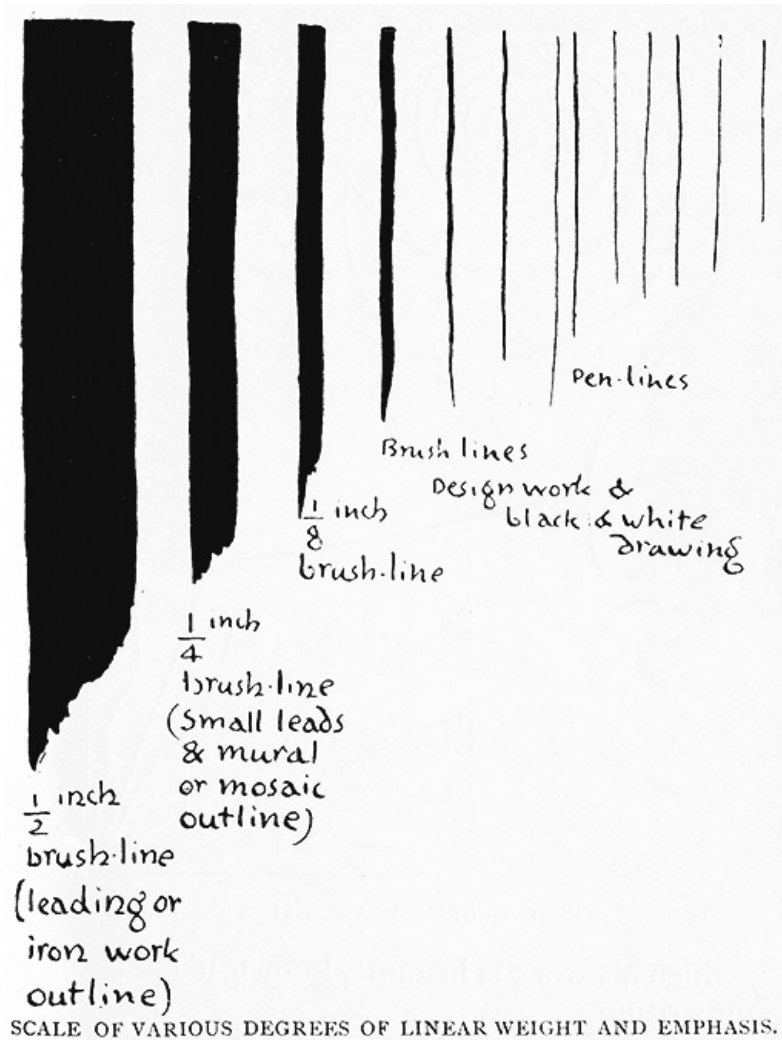 Pen-lines
Brush lines
Design work &
black & white
drawing
1/8 inch
brush-line
1/4 inch
brush-line
(small leads
& mural
or mosaic
outline)
1/2 inch
brush-line
(leading or
iron work
outline)
SCALE OF VARIOUS DEGREES OF LINEAR WEIGHT AND EMPHASIS.